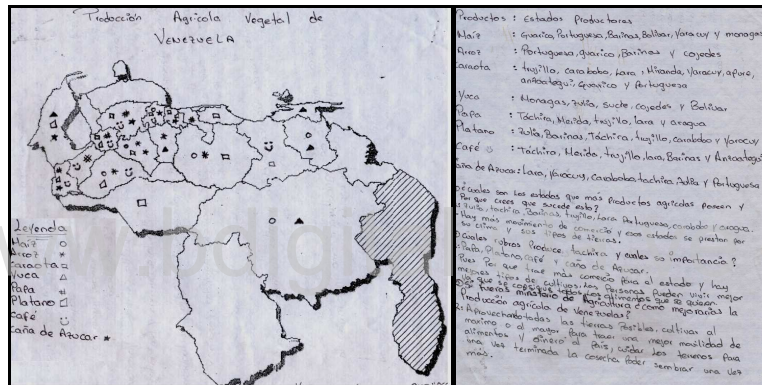 Producción Agrícola Vegetal de
VENEZUELA
Leyenda
Maíz
Arroz
Caraota
Yuca
Papa
Platano
Café
Caña de Azucar
Productos : Estados Productores
Maíz : Guarico, Portuguesa, Barinas, Bolívar, Yaracuy y monagas
Arroz : Portuguesa, guarico, Barinas y cojedes
Caraota : trujillo, carabobo, Lara, Miranda, Yaracuy, apure,
anzoategui, Guarico y Portuguesa
Yuca : Monagas, Zulia, sucre, cojedes y Bolivar
Papa : Táchira, Merida, trujillo, lara y aragua
Platano : Zulia, Barinas, Táchira, trujillo, carabobo y Yaracuy
Café : Táchira, Merida, trujillo, lara, Barinas y Anzoategui
Caña de Azucar: Lara, Yaracuy, Carabobo, tachira, Zulia y Portuguesa
¿cuales son los estados que más Productos agricolas poseen y
Por que crees que sucede esto?
Zulia, tachira, Barinas, trujillo, Lara, Portuguesa, carabobo y aragua.
Hay más movimiento de comercio y esos estados se prestan por
su clima y sus tipos de tierras.
¿Cuales rubros Produce tachira y cuales su importancia?
Papa, Platano, café y caña de Azucar.
Pues Por que trae más comercio Para el estado y hay
mejores tipos de cultivos. Las Personas Pueden vivir mejor
ya que se consigue todos los alimentos que se quieren
Si fueras ministro de Agricultura ¿como mejorarias la
Producción agricola de venezuela?
R: Aprovechando todas las tierras Posibles, cultivar al
maximo o al mayor Para traer una mejor movilidad de
alimentos y dinero al País, cuidar los terrenos Para
una ves terminada la cosecha Poder sembrar una vez
más.